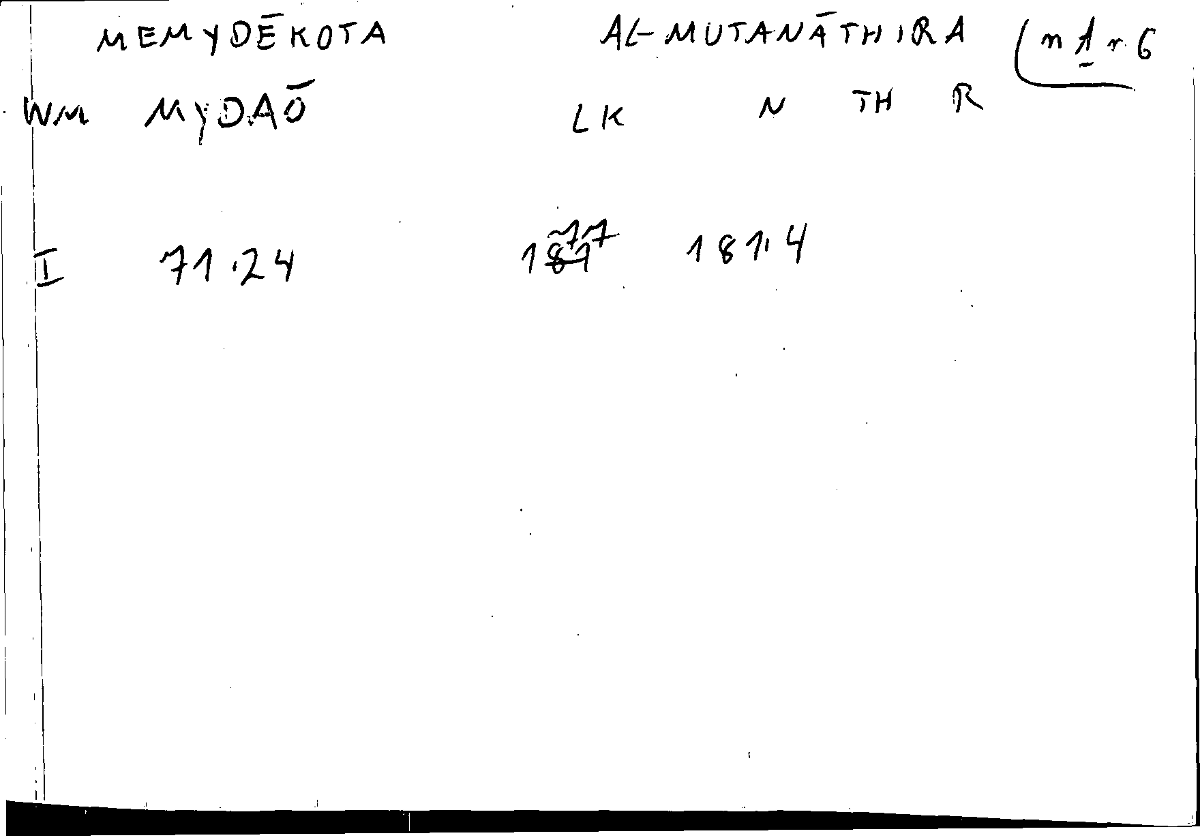 MEMYDĒKOTA AL-MUTANĀTHIRA (n 1 r. 6
WM MYDAŌ LK N TH R
I 71.24 177 181.4